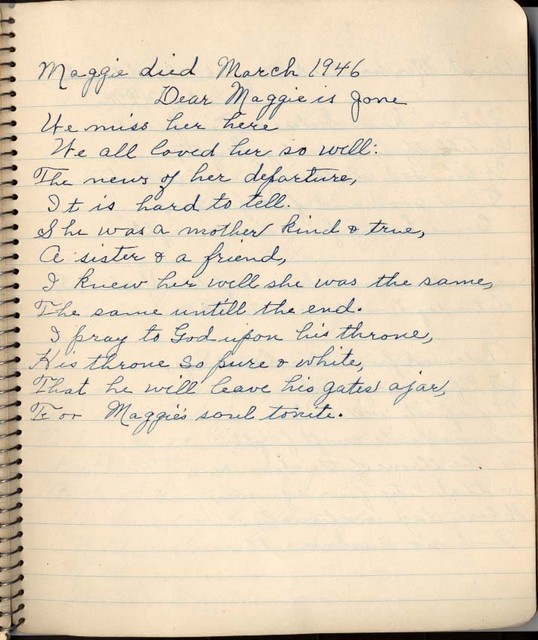 Maggie died March 1946
Dear Maggie is gone
We miss her here
We all loved her so well:
The news of her departure,
It is hard to tell.
She was a mother kind & true,
A sister & a friend,
I knew her well she was the same,
The same untill the end.
I pray to God upon his throne,
His throne so pure & white,
That he will leave his gates ajar,
For Maggie's soul tonite.